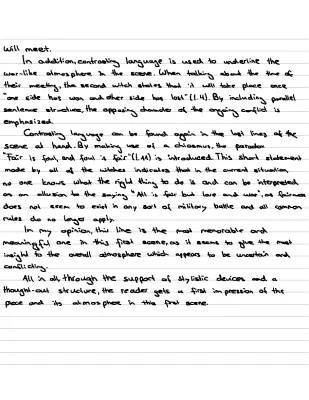 will meet.
In addition, contrasting language is used to underline the
war-like atmosphere in the scene. When talking about the time of
their meeting, the second witch states that it will take place once
"one side has won and other side has lost" (l.4). By including parallel
sentence structure, the opposing character of the ongoing conflict is
emphasized.
Contrasting language can be found again in the last lines of the
scene at hand. By making use of a chiasmus, the paradox
"Fair is foul, and foul is fair" (l.11) is introduced. This short statement
made by all of the witches indicates that in the current situation,
no one knows what the right thing to do is and can be interpreted
as an allusion to the saying "All is fair but love and war", as fairness
does not seem to exist in any sort of military battle and all common
rules do no longer apply.
In my opinion, this line is the most memorable and
meaningful one in this first scene, as it seems to give the most
insight to the overall atmosphere which appears to be uncertain and
conflicting.
All in all, through the support of stylistic devices and a
thought-out structure, the reader gets a first impression of the
piece and its atmosphere in this first scene.